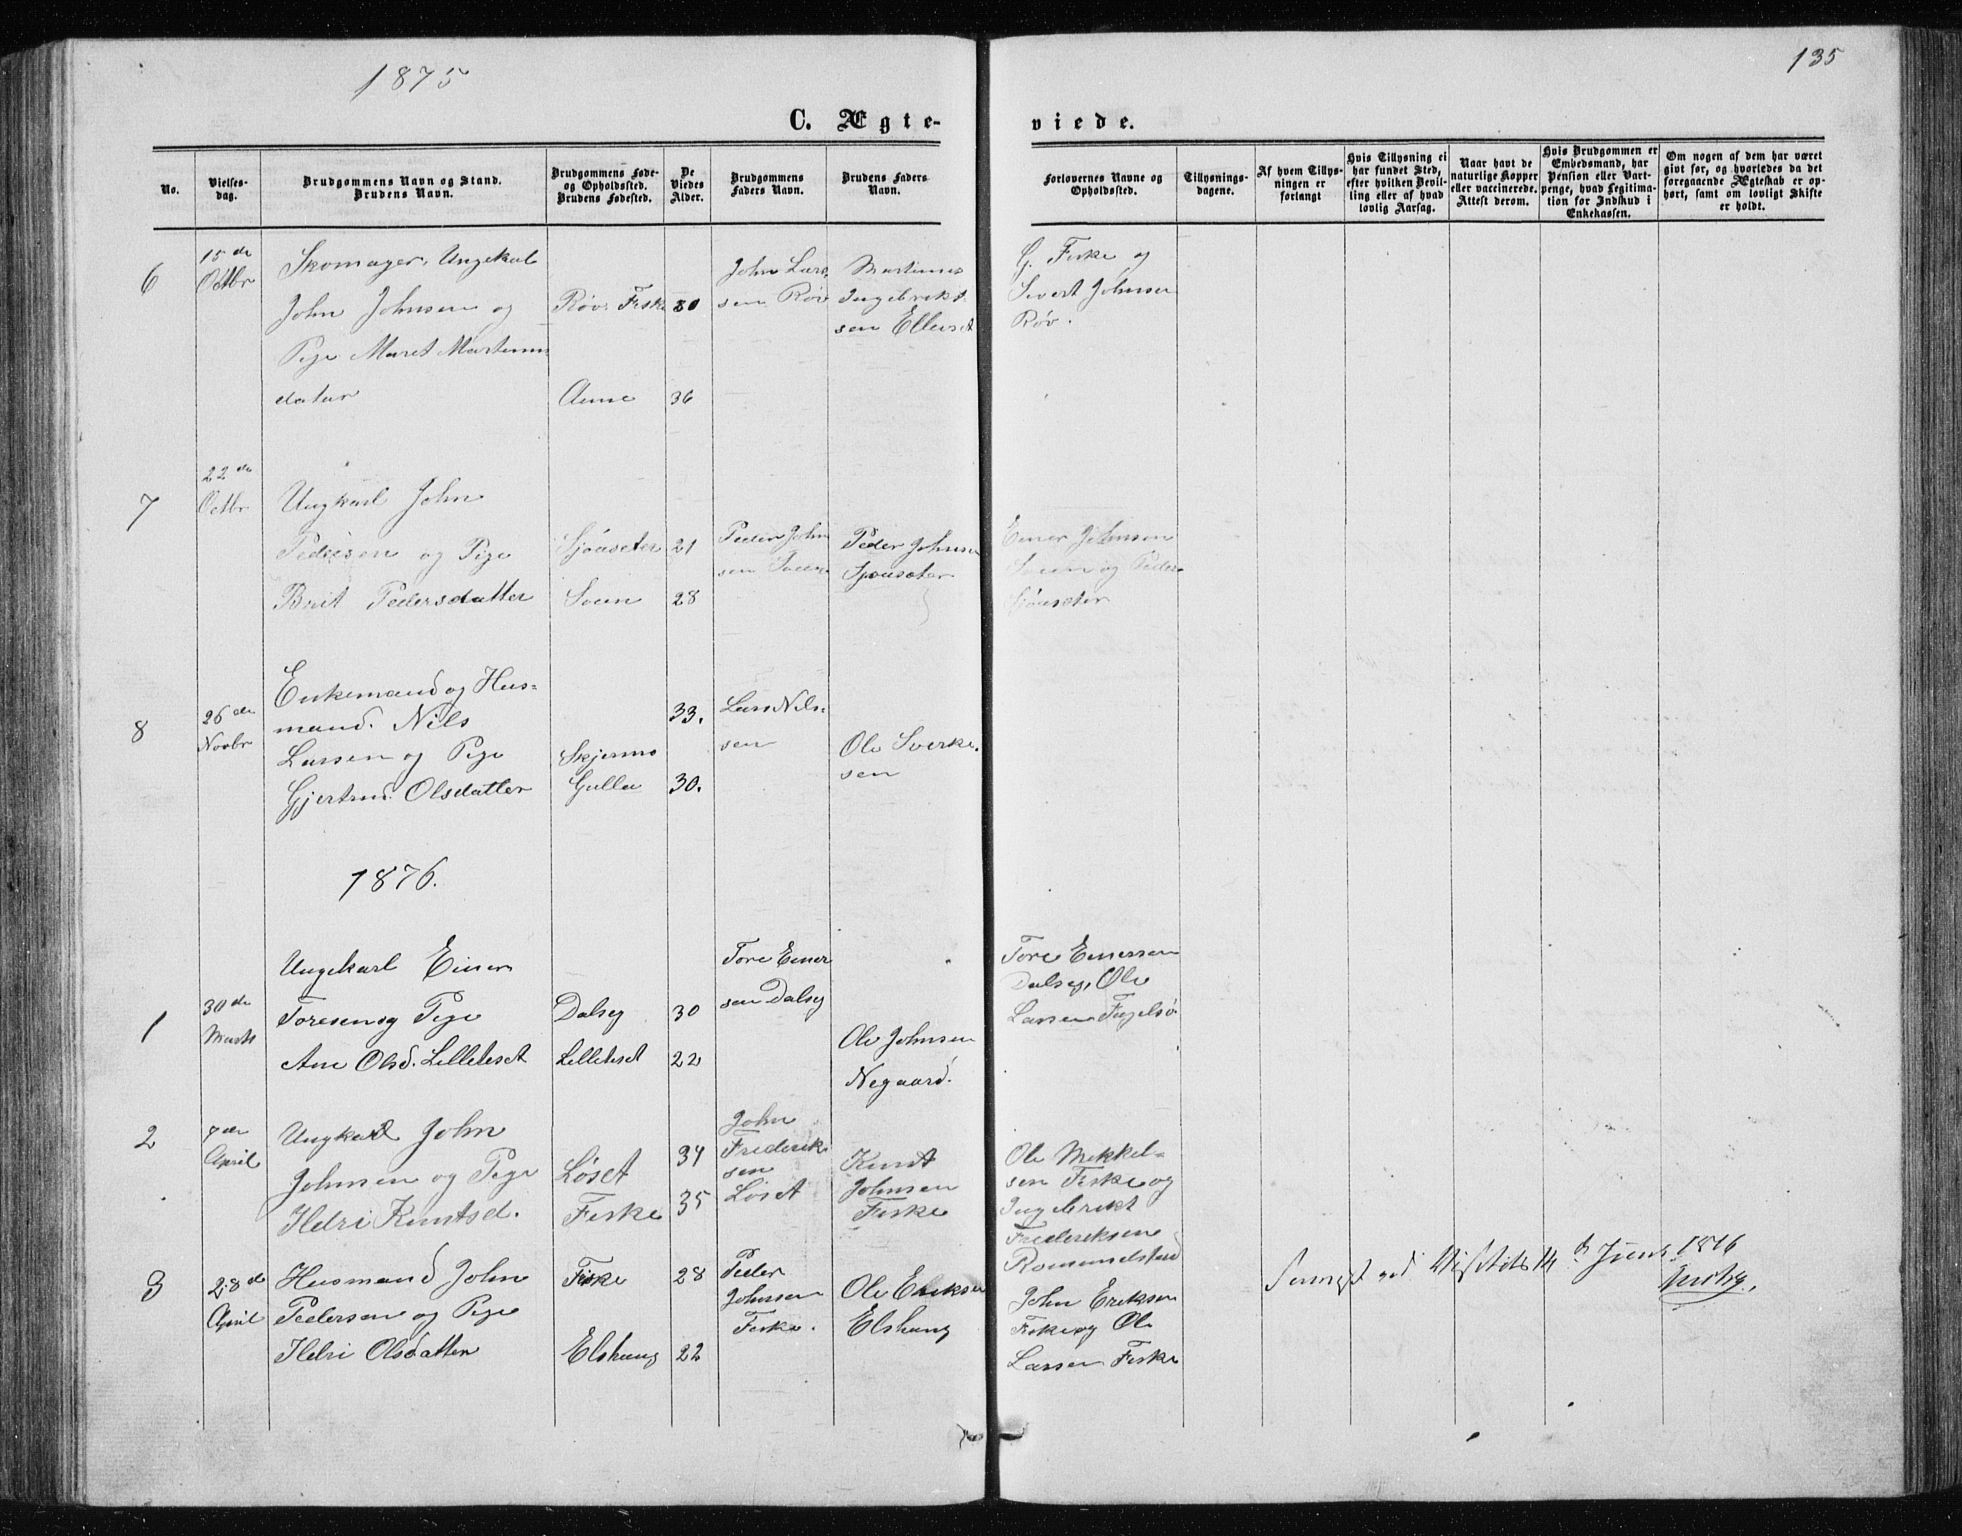 1875
135
C. Ægte-
viede.
No.
Vielses-
dag.
Brudgommens Navn og Stand.
Brudens Navn.
Brudgommens Føde-
og Opholdssted.
Brudens Fødested.
De
Viedes
Alder.
Brudgommens
Faders Navn.
Brudens Faders
Navn.
Forlovernes Navne og
Opholdssted.
Tillysnings-
dagene.
Af hvem Tillys-
ningen er
forlangt
Hvis Tillysning ei
har fundet Sted,
efter hvilken Bevil-
ling eller af hvad
lovlig Aarsag.
Naar havt de
naturlige Kopper
eller vaccinerede.
Attest derom.
Hvis Brudgommen er
Embedsmand, har
Pension eller Vart-
penge, hvad Legitima-
tion for Indskud i
Enkekassen.
Om nogen af dem har været
gift før, og hvorledes da det
foregaaende Ægteskab er op-
hørt, samt om lovligt Skifte
er holdt.
6
15de
Octbr
Skomager, Ungekal
John Johnsen og
Pige Maret Martinus
datar
Røv. Fiske
Aune
30
36
John Lars
sen Røv
Martinus
Ingebrikt
sen Ellerset
G. Fiske og
Sivert Johnsen
Røv.
7
22de
Octbr
Ungkarl John
Pedersen og Pige
Brit Pedersdatter
Sjöuseter
Sveen
21
28
Peder John
sen Sveen
Peder Johnsen
Sjöuseter
Einer Johnson
Sveen og Peder
Sjöuseter
8
26de
Novbr
Enkemand og Hus-
mand. Nils
Larsen og Pige
Gjertrud Olsdatter
Skjermo
Gulla
33.
30.
Lars Nils-
sen
Ole Sverke.
sen
1876.
1
30de
Marts
Ungekarl Einer
Toresen og Pige
Ane Olsd. Lilleteset
Dalseg
Lilleteset
30
22
Tore Einer
sen Dalseg
Ole Johnsen
Negaard.
Tore Einersen
Dalseg, Ole
Larsen Fugelsö
2
7de
April
Ungkarl John
Johnsen og Pige
Ildri Knutsd.
Løset
Fiske
34
35
John
Frederik
sen
Løset
Knut
Johnsen
Fiske
Ole Mekkel-
sen Fiske og
Ingebrikt
Frederiksen
Romundstad
3
28de
April
Husmand John
Pedersen og Pige
Ildri Olsdatter
Fiske
Elshaug
28
22
Peder
Johnsen
Fiske.
Ole Eriksen
Elshaug
John Eriksen
Fiske og Ole
Larsen Fiske
ved Juni 1876